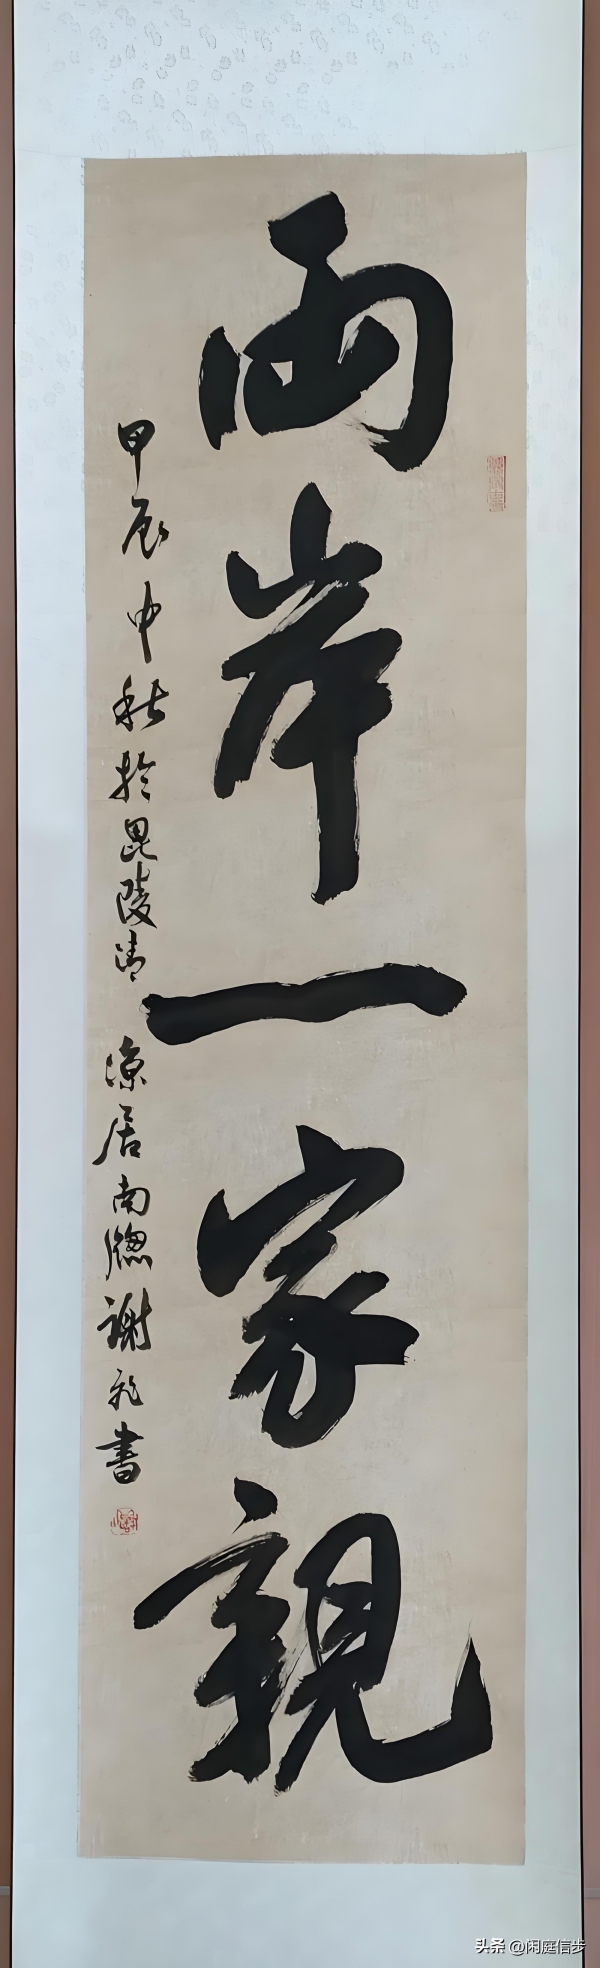 兩岸一家親
甲辰中秋於毘陵清涼居南牕謝飛書
头条 @闲庭信步